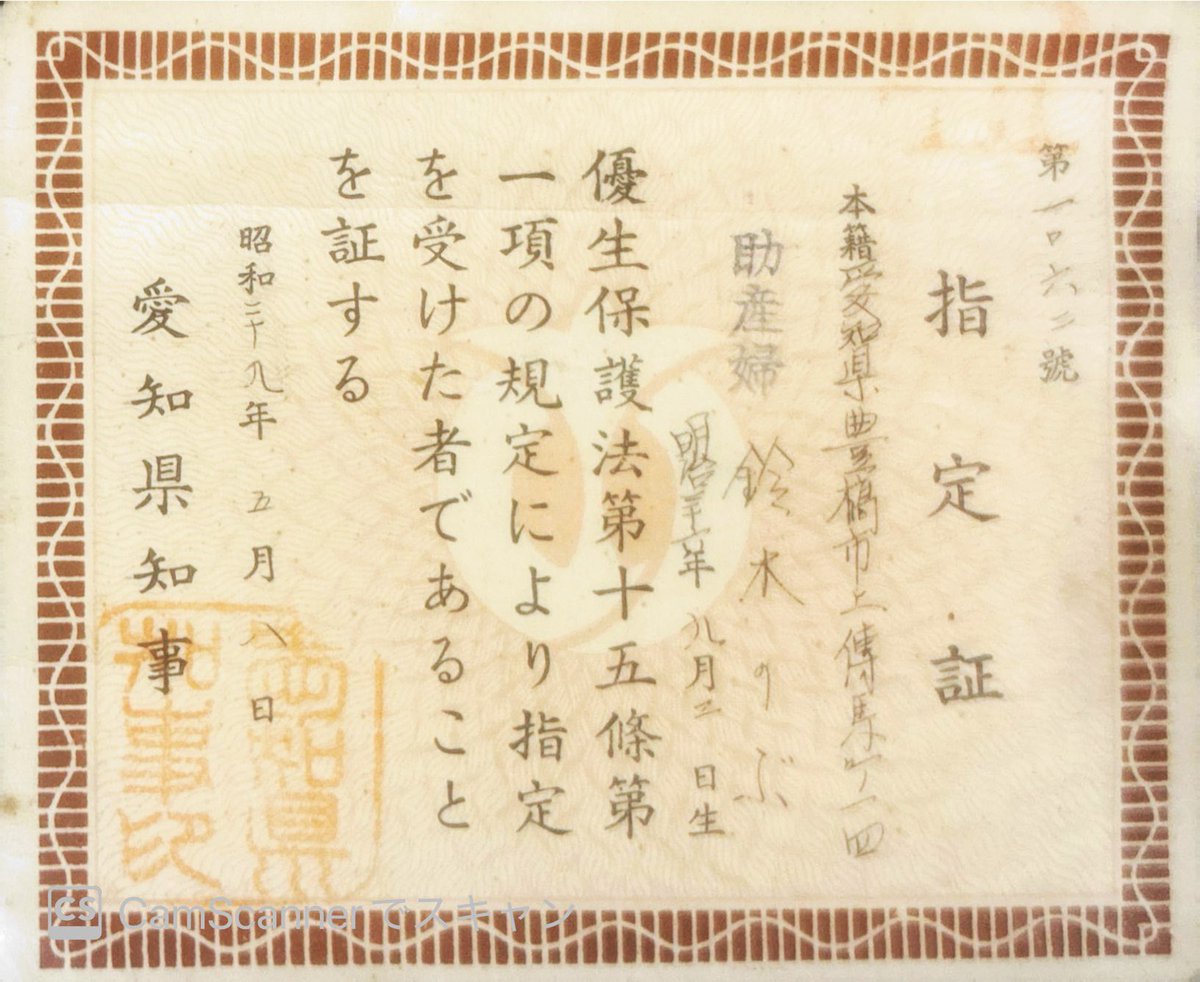 第一〇六二號
指定証
本籍 愛知県豊橋市上傳馬町一四
助産婦 鈴木のぶ
明治三十年九月三日生
優生保護法第十五條第
一項の規定により指定
を受けた者であること
を証する
昭和二十九年五月八日
愛知県知事
愛知県
知事印
CS CamScannerでスキャン